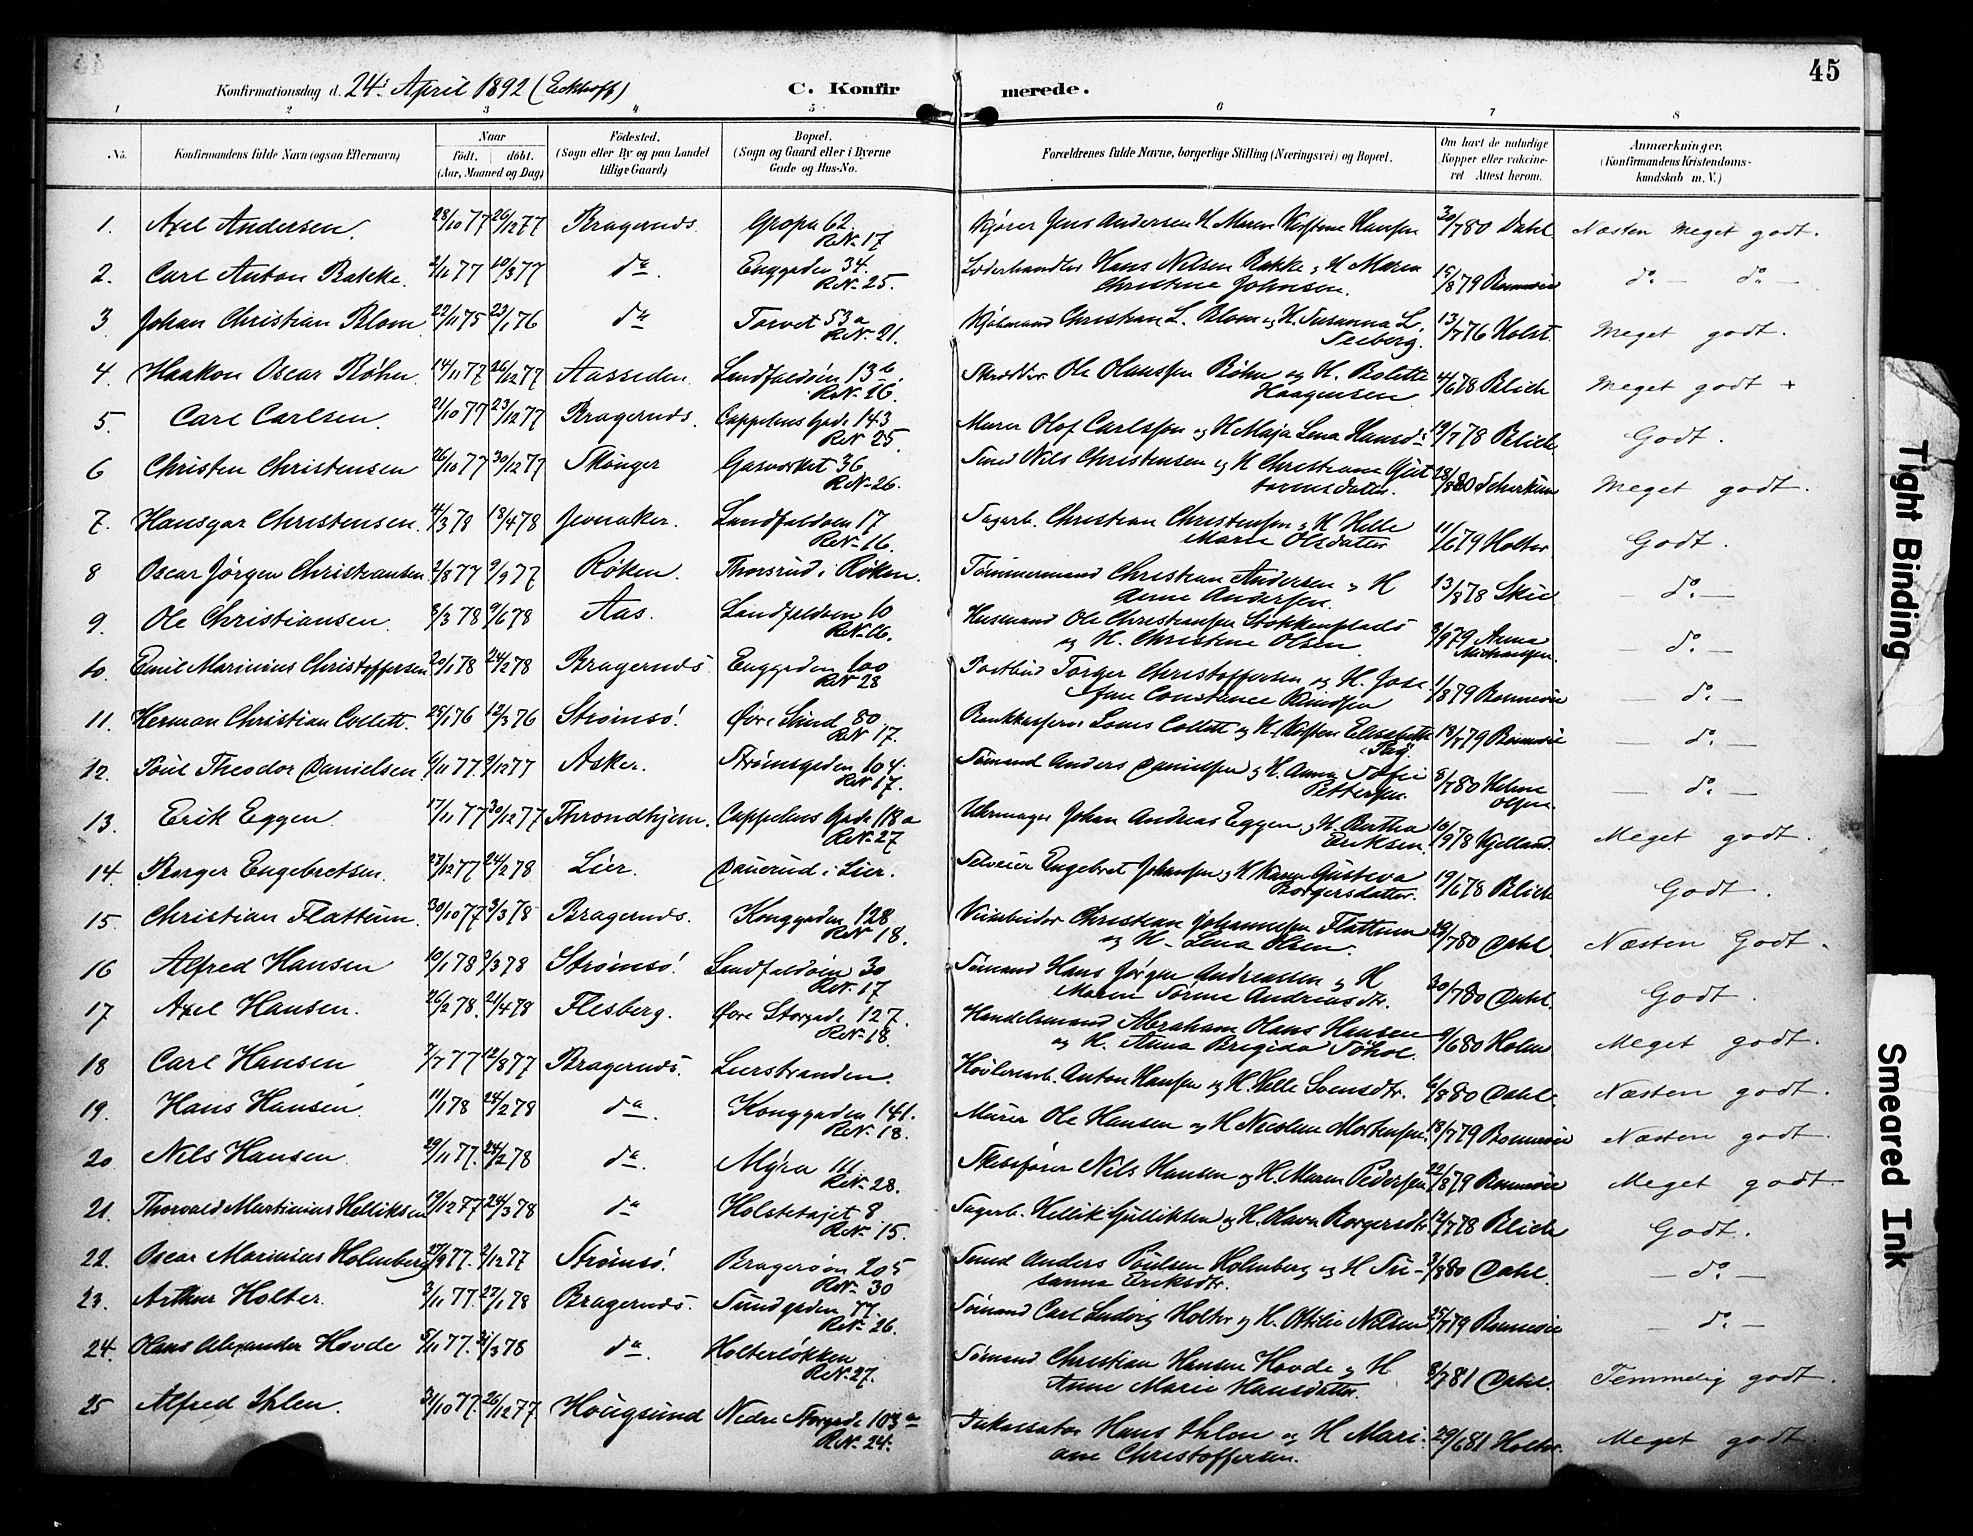 45
Konfirmationsdag d. 24. April 1892 (Eckhoff)
C. Konfirmerede.
1 2 3 4 5 6 7 8
No. Konfirmandens fulde Navn (ogsaa Efternavn) Naar födt. döbt. (Aar, Maaned og Dag) Födested. (Sogn eller By og paa Landet tillige Gaard) Bopæl. (Sogn og Gaard eller i Byerne Gade og Hus-No. Forældrenes fulde Navne, borgerlige Stilling (Næringsvei) og Bopæl. Om havt de naturlige Kopper eller vakcineret Attest herom. Anmærkninger. (Konfirmandens Kristendomskundskab m. V.)
1. Axel Andersen. 28/10 77 26/12 77 Bragernæs. Gropa 62. RN. 17 Kjører Jens Andersen H. Maren Kirstine Hansen 30/7 80 Dahl Næsten Meget godt.
2. Carl Anton Bakke. 2/11 77 do. Enggaden 34. RN. 25. Læderhandler Hans Nilsen Bakke og H. Maren Christine Johnsen. 15/8 79 do. do.
3 Johan Christian Blom 22/11 75 23/1 76 do. Torvet 53a RN. 21. Kjøbmand Christian L. Blom og H. Susanna L. Seeberg. 13/7 76 Holst. Meget godt.
4. Haakon Oscar Røhn 14/11 77 26/12 77 Aassiden. Landfaldøen 13b. RN. 16. Ole Olaussen Røhn og H. Bolette Haagensen 4/6 78 Blich Meget godt +
5. Carl Carlsen. 21/10 77 23/12 77 Bragernæs. Cappelens Gade 143 RN 25. Murer Olof Carlsson og H. Maja Lena Hansd. 19/7 78 Blich Godt.
6 Christen Christensen 26/10 77 30/12 77 Skouger Gasverket 36 RN. 26. Smed Nils Christensen og H. Christiane 23/8 80 Meget godt.
7. Hansgar Christensen. 4/3 78 18/4 78 Jevnaker. Landfaldøen 17 RN. 16. Sagarb. Christian Christensen og H. Helle Marie Olsdatter 11/6 79 Holter Godt.
8 Oscar Jørgen Christiansen 2/8 77 9/9 77 Røken. Thorsrud i Røken. Tømmermand Christian Andersen og H. Anne Andersen. 13/8 78 Skie do.
9. Ole Christiansen. 8/3 78 9/6 78 Aas. Landfaldøen 10 RN. 16. Husmand Ole Christiansen Stokkenplads og H. Christine Olsen. 8/9 79 Anna do.
10. Emil Marinius Christoffersen 20/1 78 24/2 78 Bragernæs Enggaden 100 RN 28 Postbud Torger Christoffersen og H. Josefine Constance Knudsen 11/8 79 do.
11. Herman Christian Collett. 25/1 76 12/3 76 Strømsø. Øvre Sund 80. RN 17. Bankkasserer Louis Collett og H. Kirsten Elisabeth 18/7 79 do.
12. Paul Theodor Danielsen 6/11 77. 9/12 77 Asker. Strømsgaden 104. RN. 17. Sømand Anders Danielsen og H. Anna Sofie Pettersen. 8/7 80 Helene Olsen do.
13. Erik Eggen. 17/11 77 30/12 77 Throndhjem. Cappelens Gade 118a RN. 27 Uhrmager Johan Andreas Eggen og H. Bertha Eriksen. 10/9 78 Kjelland. Meget godt.
14. Borger Engebretsen. 23/12 77 24/2 78 Lier. i Lier. Selveier Engebret Johansen og H. Karen Gustava Borgersdatter. 19/6 78 Blich Godt.
15. Christian Flattum. 30/10 77 3/3 78 Bragernæs. Konggaden 128 RN 18. Christian Johannesen Flattum og H. Lena Olsen. 29/7 80 Dahl. Næsten Godt.
16 Alfred Hansen 10/1 78 3/3 78 Strømsø. Landfaldøen 30 RN. 17 Sømand Hans Jørgen Andreassen og H. Maren Sørine Andreasdtr. 30/7 80 Dahl. Godt.
17 Axel Hansen. 26/2 78. 21/4 78 Flesberg. Øvre Storgade 127. RN. 18. Handelsmand Abraham Olaus Hansen og H. Anna Brigida Søhol. 9/6 80 Holm Meget godt.
18 Carl Hansen 7/7 77 12/8 77 Bragernæs. Lierstranden. Høvleriarb. Anton Hansen og H. Helle Svensdtr. 6/8 80 Dahl. Næsten godt.
19. Hans Hansen. 11/1 78 24/2 78 do. Konggaden 141. RN. 18. Murer Ole Hansen og H. Nicoline Mortensen. 18/7 79 Næsten godt.
20 Nils Hansen. 29/11 77. 24/2 78 do. Myra 111. RN. 28. Skibsfører Nils Hansen og H. Maren Pedersen 22/8 79 Meget godt.
21. Thorvald Martinius Helliksen 19/12 77 24/3 78 do. 8 RN. 15. Sagarb. Hellik Gulliksen og H. Olava Borgersdtr. 12/7 78 Blich Godt.
22. Oscar Marinius Holmberg 27/9 77. 2/12 77 Strømsø. Bragerøen 205 RN. 30 Smed Anders Poulsen Holmberg og H. Susanna Eriksdtr. 3/8 80 Dahl. do.
23. Arthur Holter. 3/11 77. 27/1 78 Bragernæs. Sundgaden 77. RN. 26. Sømand Carl Ludvig Holter og H. Ottilie Nilsen 25/7 79 do.
24. Olaus Alexander Hovde 5/11 77. 31/3 78 do. Holterløkken RN. 27. Sømand Christian Hansen Hovde og H. Anne Marie Hansdatter. 8/7 81 Dahl. Temmelig godt.
25 Alfred Ihlen. 31/10 77. 26/12 77 Hougsund Nedre Storgade 103a RN. 24. Inkassator Hans Ihlen og H. Mariane Christoffersen. 29/6 81 Holter. Meget godt.
Tight Binding
Smeared Ink